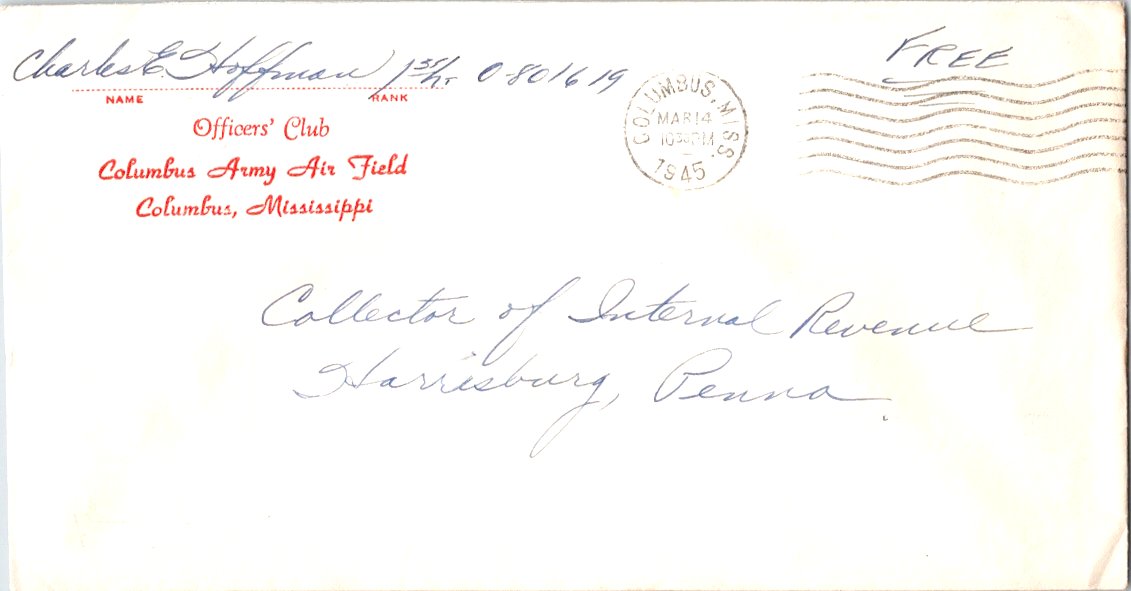 Charles E. Hoffman 1st Lt. O-801619
NAME RANK
Officers' Club
Columbus Army Air Field
Columbus, Mississippi
COLUMBUS, MISS.
MAR 14
1945
FREE
Collector of Internal Revenue
Harrisburg, Penna.